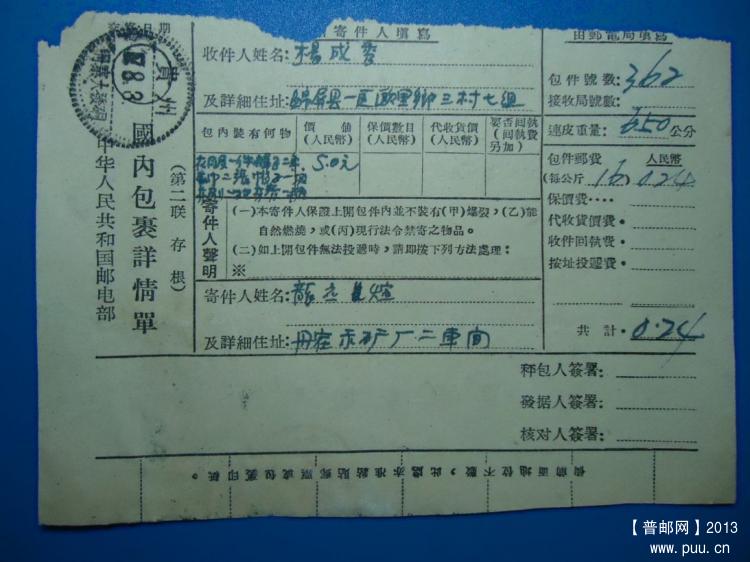 寄件人填寫
收件人姓名:楊成
及詳細住址:錦屏县一区 鄉三村七組
包內裝有何物
價值(人民幣)
保價數目(人民幣)
代收貨價(人民幣)
要否回執(回執費另加)
5.0元
寄件人聲明
(一)本寄件人保證上開包件內並不裝有(甲)爆裂,(乙)能
自然燃燒,或(丙)現行法令禁寄之物品。
(二)如上開包件無法投遞時,請即按下列方法處理:
※
寄件人姓名:龍
及詳細住址:丹寨汞矿厂二車间
由郵電局填寫
包件號數:362
接收局號數:
連皮重量:650公分
包件郵費 人民幣
(每公斤 16 0.24
保價費••••
代收貨價費•
收件回執費•
按址投遞費•
共計•0.24
秤包人簽署:
發据人簽署:
核对人簽署:
貴州
國內包裹詳情單
(第二联存根)
中华人民共和国邮电部
倘前面地位不敷,此處亦准粘貼郵票或包裹印紙。
【普邮网】2013
www.puu.cn